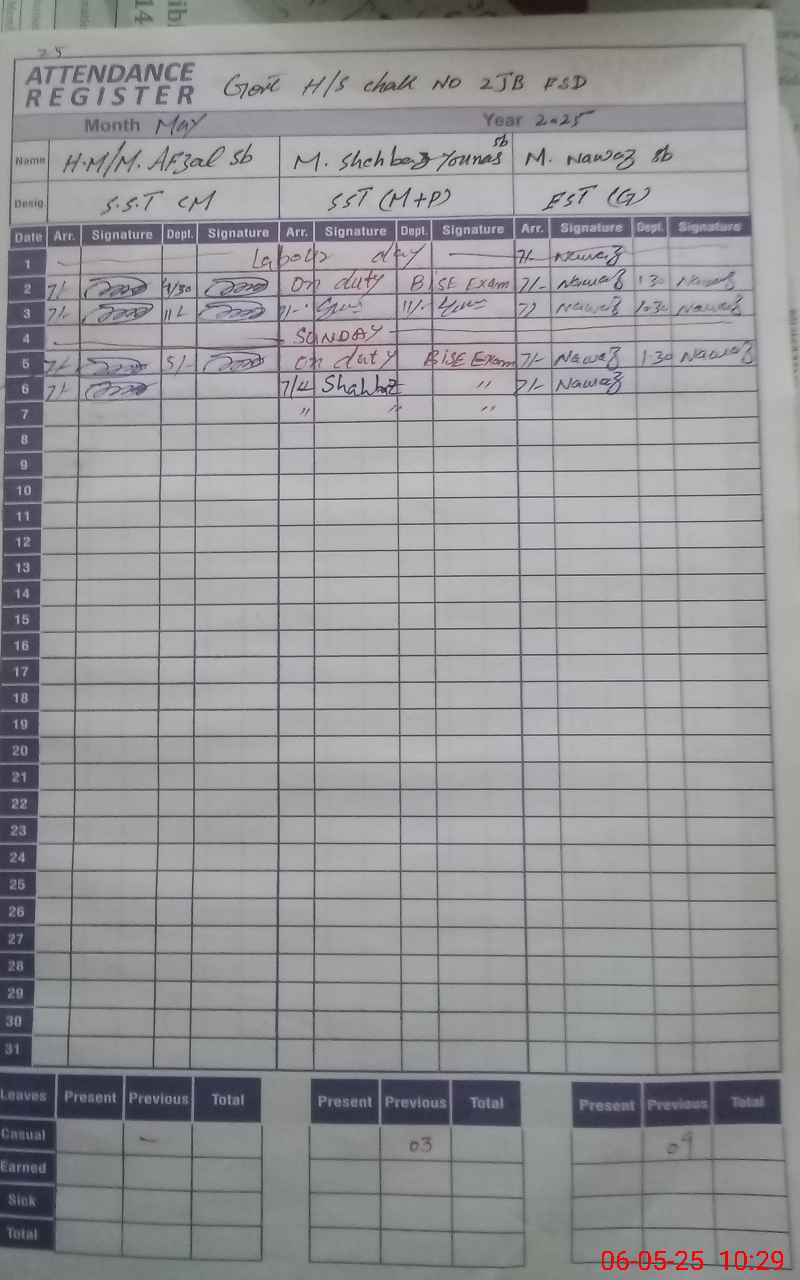 25
ATTENDANCE REGISTER Govt H/S chak NO 2JB FSD
Month May Year 2025
Name H.M/M. Afzal sb M. Shehbaz Younas sb M. Nawaz sb
Desig. S.S.T CM SST (M+P) EST (G)
Date Arr. Signature Dept. Signature Arr. Signature Dept. Signature Arr. Signature Dept. Signature
1 Labour day 7/- Nawaz
2 7/- 4/30 on duty BISE Exam 7/- Nawaz 1:30 Nawaz
3 7/- 11/- 7/- 11/- 7/- Nawaz 10:30 Nawaz
4 SUNDAY
5 7/- 5/- on duty BISE Exam 7/- Nawaz 1:30 Nawaz
6 7/- 7/4 Shahbaz " 7/- Nawaz
7 " " "
8
9
10
11
12
13
14
15
16
17
18
19
20
21
22
23
24
25
26
27
28
29
30
31
Leaves Present Previous Total Present Previous Total Present Previous Total
Casual - 03 09
Earned
Sick
Total
06-05-25 10:29